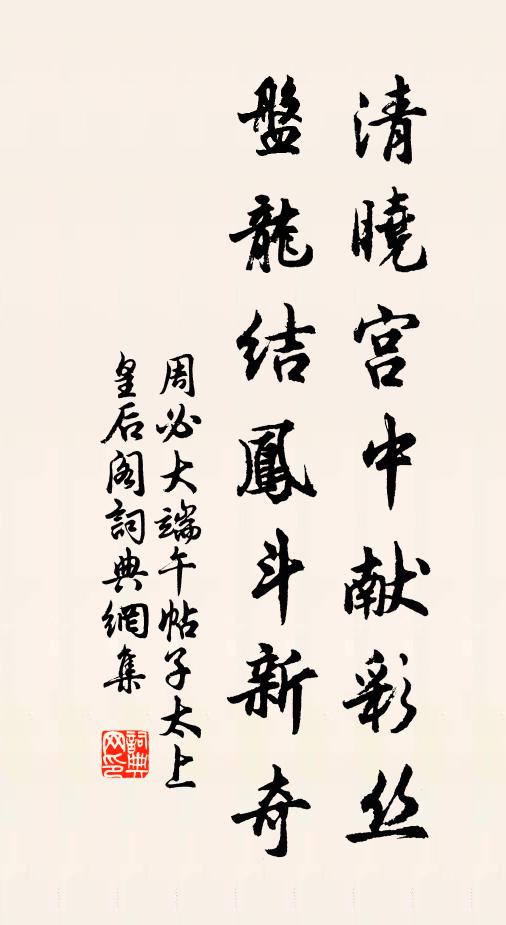 清曉宫中献彩丝
盤龍结鳳斗新奇
周必大端午帖子太上
皇后阁詞典網集
詞典网印